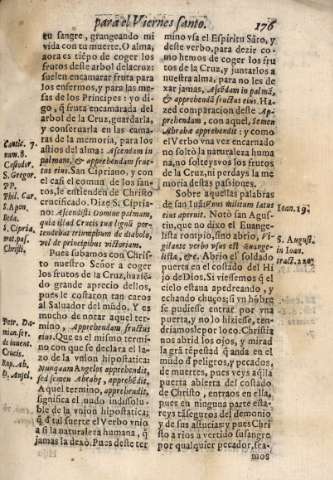 para el Viernes santo. 176
su sangre, grangeando mi
vida con tu muerte. O alma,
aora es tiẽpo de coger los
frutos deste arbol dela cruz:
suelen encamarar fruta para
los enfermos, y para las me-
sas de los Principes: yo di-
go, q̃ fruta encamarada del
arbol de la Cruz, guardarla,
y conseruarla en las cama-
ras de la memoria, para los
astios del alma: Ascendam in
palmam, & apprehendam fruc-
tus eius. San Cipriano, y con
el casi el comun de los san-
tos, le entiendẽ de Christo
crucificado. Dize S. Cipria-
no: Ascendisti Domine palmam,
quia illud Crucis tuæ lignũ por-
tendebat triumphum de diabolo,
vel de principibus victoriam.
Pues subamos con Chris-
to nuestro Señor a coger
los frutos de la Cruz, haziẽ-
do grande aprecio dellos,
pues le costarõ tan caros
al Saluador del mũdo. Y es
mucho de notar aquel ter-
mino, Apprehendam fructus
eius. Que es el mismo termi-
no con que se declara el la-
zo de la vnion hipostatica:
Nunquam Angelos apprehendit,
sed semen Abrahæ, apprehẽdit.
A quel termino, apprehendit,
significa el nudo indissolu-
ble de la vnion hipostatica;
q̃ d tal suerte el Verbo vnio
a si la naturaleza humana, q̃
jamas la dexò. Pues deste ter
Cantic. 7.
num. 8.
Casiodor.
S. Gregor.
PP.
Phil. Car.
Beda.
S. Cipria.
Christi.
Petr. Da-
mian. ser.
de inuent.
Crucis.
Rup. Ab.
D. Ansel.
mino vsa el Espiritu Sãto, y
deste verbo, para dezir co-
mo hemos de coger los fru-
tos de la Cruz, y juntarlos a
nuestra alma, para no les de
xar jamas, Ascẽdam in palmã,
& apprehendã fructus eius. Ha-
zed comparacion deste Ap-
prehendam, con aquel, Semen
Abrahæ apprehendit: y como
el Verbo vna vez encarnado
en solo la naturaleza huma
na, no solteys vos los frutos
de la Cruz, ni perdays la me
moria destas passiones.
Sobre aquellas palabras
de san Iuã: Vnus militum latus
eius aperuit. Notò san Agus-
tin, que no dixo el Euange-
lista rompiò, sino abrio, Vi-
gilante verbo vsus est Euange-
lista, &c. Abrio el soldado
puerta en el costado del Hi
jo de Dios. Si viessemos q̃ el
cielo estaua apedreando, y
echando chuços; si vn hõbre
se pudiesse entrar por vna
puerta, y no lo hiziesse, ten-
driamosle por loco. Christia
nos abrid los ojos, y mirad
la grã tẽpestad q̃ anda en el
mũdo d peligros, y pecados,
de muertes, pues veys aqui la
puerta abierta del costado
de Christo, entraos en ella,
pues en ninguna parte esta-
reys tã seguros del demonio
y de sus astucias; y pues Chris
to a rios à vertido su sangre
por qualquier pecador, sea-
mos
Ioan. 19.
S. August.
in Ioan.